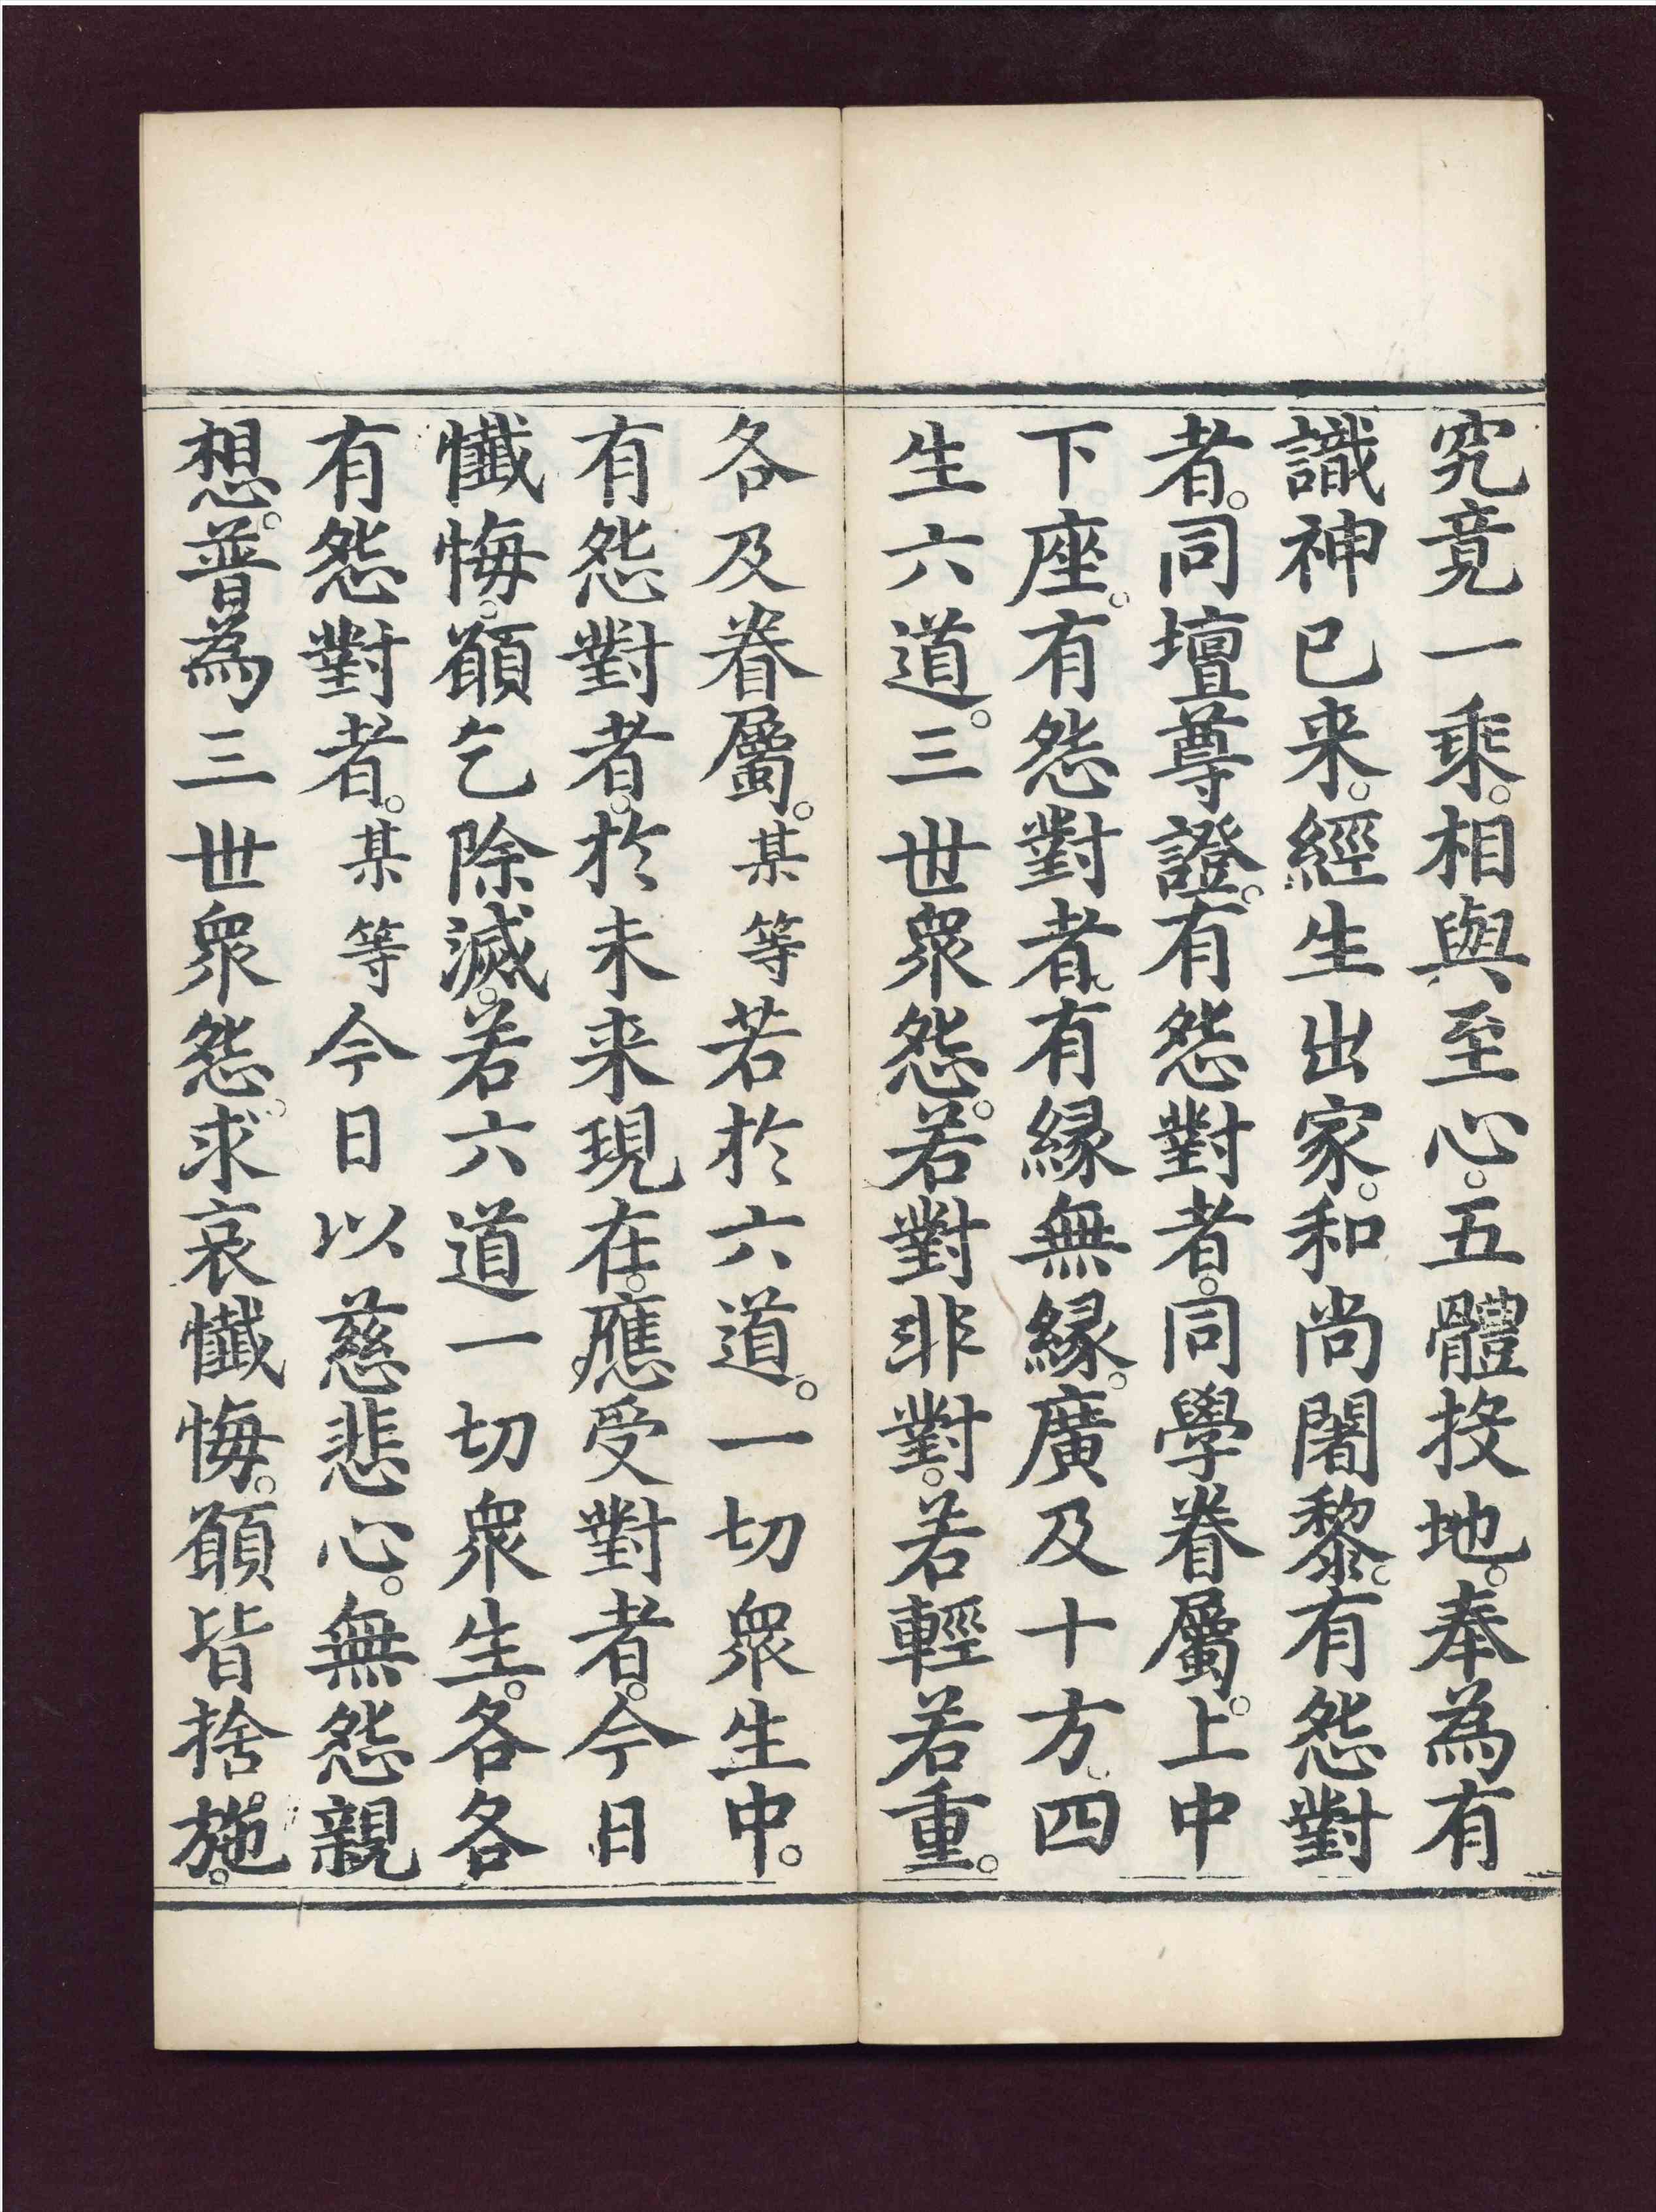 究竟一乘。相與至心。五體投地。奉為有
識神已来。經生出家。和尚闍黎。有怨對
者。同壇尊證。有怨對者。同學眷屬。上中
下座。有怨對者。有縁無縁。廣及十方。四
生六道。三世衆怨。若對非對。若輕若重。
各及眷屬。某等若於六道。一切衆生中。
有怨對者。於未来現在。應受對者。今日
懺悔。願乞除滅。若六道一切衆生。各各
有怨對者。某等今日以慈悲心。無怨親
想。普為三世衆怨。求哀懺悔。願皆捨施。